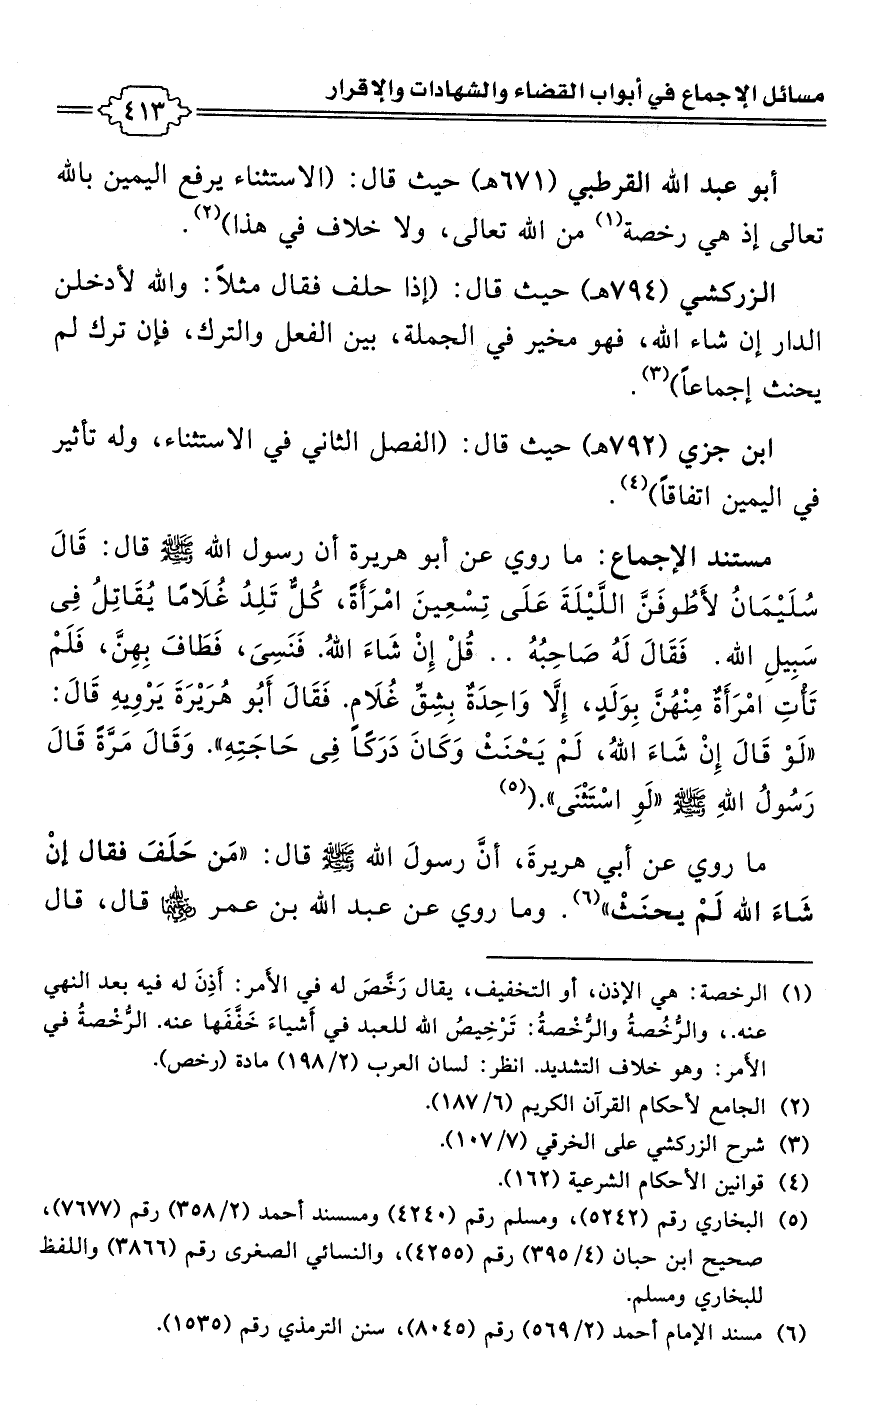 مسائل الإجماع في أبواب القضاء والشهادات والإقرار
٤١٣
أبو عبد الله القرطبي (٦٧١هـ) حيث قال: (الاستثناء يرفع اليمين بالله
تعالى إذ هي رخصة(١) من الله تعالى، ولا خلاف في هذا)(٢).
الزركشي (٧٩٤هـ) حيث قال: (إذا حلف فقال مثلاً: والله لأدخلن
الدار إن شاء الله، فهو مخير في الجملة، بين الفعل والترك، فإن ترك لم
يحنث إجماعاً)(٣).
ابن جزي (٧٩٢هـ) حيث قال: (الفصل الثاني في الاستثناء، وله تأثير
في اليمين اتفاقاً)(٤).
مستند الإجماع: ما روي عن أبو هريرة أن رسول الله ﷺ قال: قَالَ
سُلَيْمَانُ لأَطُوفَنَّ اللَّيْلَةَ عَلَى تِسْعِينَ امْرَأَةً، كُلٌّ تَلِدُ غُلَامًا يُقَاتِلُ فِى
سَبِيلِ الله. فَقَالَ لَهُ صَاحِبُهُ .. قُلْ إِنْ شَاءَ اللهُ. فَنَسِىَ، فَطَافَ بِهِنَّ، فَلَمْ
تَأْتِ امْرَأَةٌ مِنْهُنَّ بِوَلَدٍ، إِلَّا وَاحِدَةٌ بِشِقِّ غُلَامٍ. فَقَالَ أَبُو هُرَيْرَةَ يَرْوِيهِ قَالَ:
«لَوْ قَالَ إِنْ شَاءَ اللهُ، لَمْ يَحْنَثْ وَكَانَ دَرَكًا فِى حَاجَتِهِ». وَقَالَ مَرَّةً قَالَ
رَسُولُ اللهِ ﷺ «لَوِ اسْتَثْنَى».(٥)
ما روي عن أبي هريرةَ، أنَّ رسولَ الله ﷺ قال: «مَن حَلَفَ فقال إنْ
شَاءَ الله لَمْ يحنَثْ»(٦). وما روي عن عبد الله بن عمر رضي الله عنهما قال، قال
(١) الرخصة: هي الإذن، أو التخفيف، يقال رَخَّصَ له في الأمر: أَذِنَ له فيه بعد النهي
عنه.، والرُّخُصةُ والرُّخْصةُ: تَرْخِيصُ الله للعبد في أَشياءَ خَفَّفَها عنه. الرُّخْصةُ في
الأمر: وهو خلاف التشديد. انظر: لسان العرب (١٩٨/٢) مادة (رخص).
(٢) الجامع لأحكام القرآن الكريم (١٨٧/٦).
(٣) شرح الزركشي على الخرقي (١٠٧/٧).
(٤) قوانين الأحكام الشرعية (١٦٢).
(٥) البخاري رقم (٥٢٤٢)، ومسلم رقم (٤٢٤٠) ومسسند أحمد (٣٥٨/٢) رقم (٧٦٧٧)،
صحيح ابن حبان (٣٩٥/٤) رقم (٤٢٥٥)، والنسائي الصغرى رقم (٣٨٦٦) واللفظ
للبخاري ومسلم.
(٦) مسند الإمام أحمد (٥٦٩/٢) رقم (٨٠٤٥)، سنن الترمذي رقم (١٥٣٥).